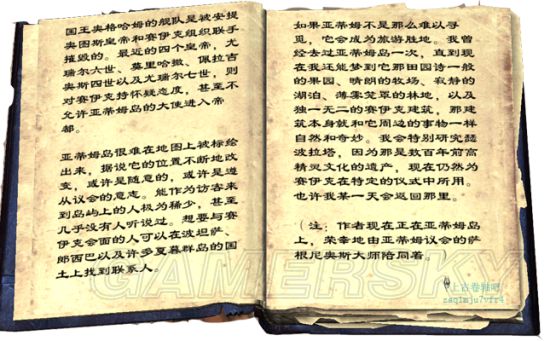 国王奥格哈姆的舰队是被安提
奥图斯皇帝和赛伊克组织联手
摧毁的。最近的四个皇帝，尤
瑞尔六世、莫里哈撒、佩拉吉
奥斯四世以及尤瑞尔七世，则
对赛伊克持怀疑态度，甚至不
允许亚蒂姆岛的大使进入帝
都。
亚蒂姆岛很难在地图上被标绘
出来，据说它的位置不断地改
变，或许是随意的，或许是遵
从议会的意志。能作为访客来
到岛屿上的人极为稀少，甚至
几乎没有人听说过。想要与赛
伊克会面的人可以在波坦萨、
郎西巴以及许多夏暮群岛的国
土上找到联系人。
如果亚蒂姆不是那么难以寻
觅，它会成为旅游胜地。我曾
经去过亚蒂姆岛一次，直到现
在我还能梦到它那田园诗一般
的果园、晴朗的牧场、寂静的
湖泊、薄雾笼罩的林地，以及
独一无二的赛伊克建筑，那建
筑本身就和它周边的事物一样
自然和奇妙。我会特别研究瑟
波拉塔，因为那是数百年前高
精灵文化的遗产，现在仍然为
赛伊克在特定的仪式中所用。
也许我某一天会返回那里。
（注：作者现在正在亚蒂姆岛
上，荣幸地由亚蒂姆议会的萨
根尼奥斯大师陪同着。）
GAMERSKY
上古卷轴吧